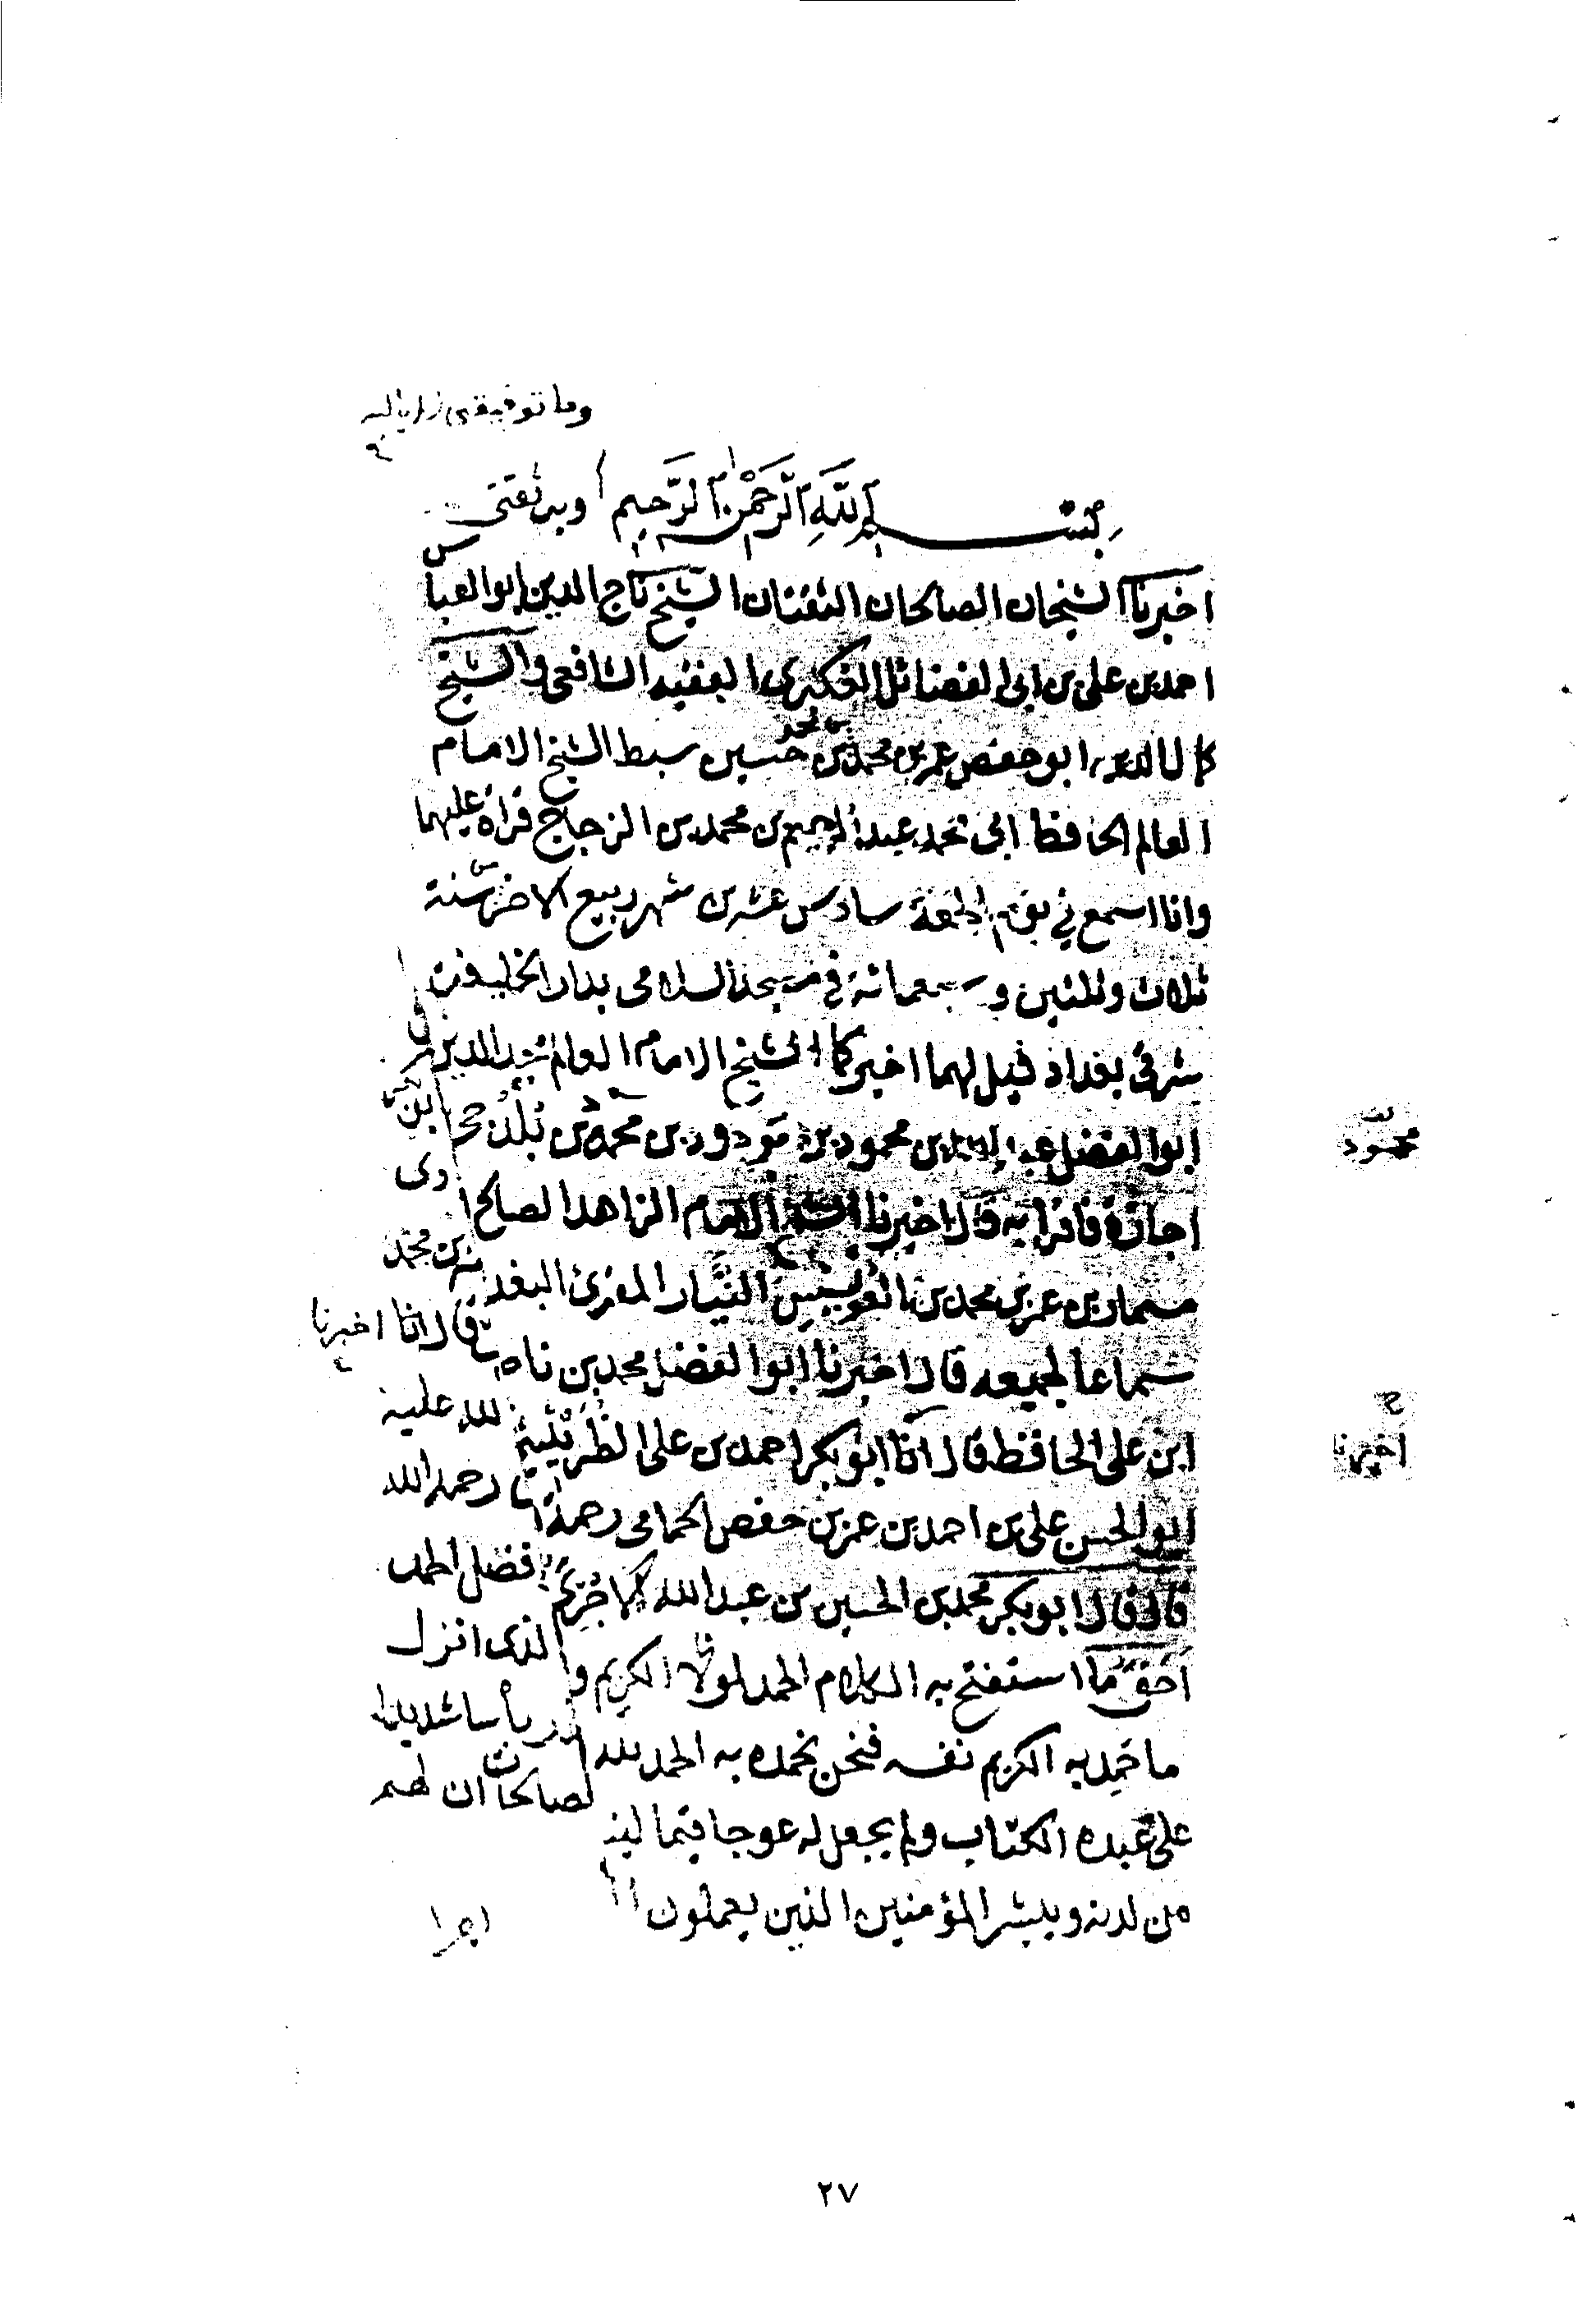 وما توفيقي إلا بالله
بسم الله الرحمن الرحيم وبه ثقتي
اخبرنا الشيخان الصالحان الثقتان الشيخ تاج الدين ابو العباس
احمد بن علي بن ابي الفضائل الفقيه الشافعي والشيخ
كمال الدين ابو حفص عمر بن محمد بن محمد بن حسين سبط الشيخ الامام
العالم الحافظ ابي محمد عبد الرحيم بن محمد بن الزجاج قراة عليهما
وانا اسمع في يوم الجمعة سادس عشرين شهر ربيع الاخر سنة
ثلاث وثلثين وسبعمائة في مسجد السلامي بدار الخليفة
شرقي بغداد قيل لهما اخبركما الشيخ الامام العالم مجد الدين
ابو الفضل عبد الله بن محمود بن مودود بن محمد بن بلدجي
محمود
اجازة فاقرا به قال اخبرنا الشيخ الامام الزاهد الصالح
مسمار بن عمر بن محمد بن العويس النيار المقرئ البغدادي
سماعا لجميعه قال اخبرنا ابو الفضل محمد بن ناصر بن محمد
ابن علي الحافظ قال انا ابو بكر احمد بن علي الطريثيثي قال انا اخبرنا
اخبرنا
ابو الحسن علي بن احمد بن عمر بن حفص الحمامي رحمة الله عليه
قال قال ابو بكر محمد بن الحسين بن عبد الله الاجري رحمه الله
احق ما استفتح به الكلام الحمد لمولانا الكريم وافضل الحمد
ما حمد به الكريم نفسه فنحن نحمده به الحمد لله الذي انزل
على عبده الكتاب ولم يجعل له عوجا قيما لينذر بأسا شديدا
من لدنه ويبشر المؤمنين الذين يعملون الصالحات ان لهم
اجرا
٢٧